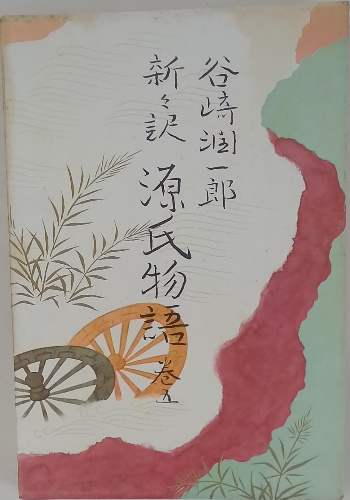 谷崎潤一郎
新々訳
源氏物語 巻五